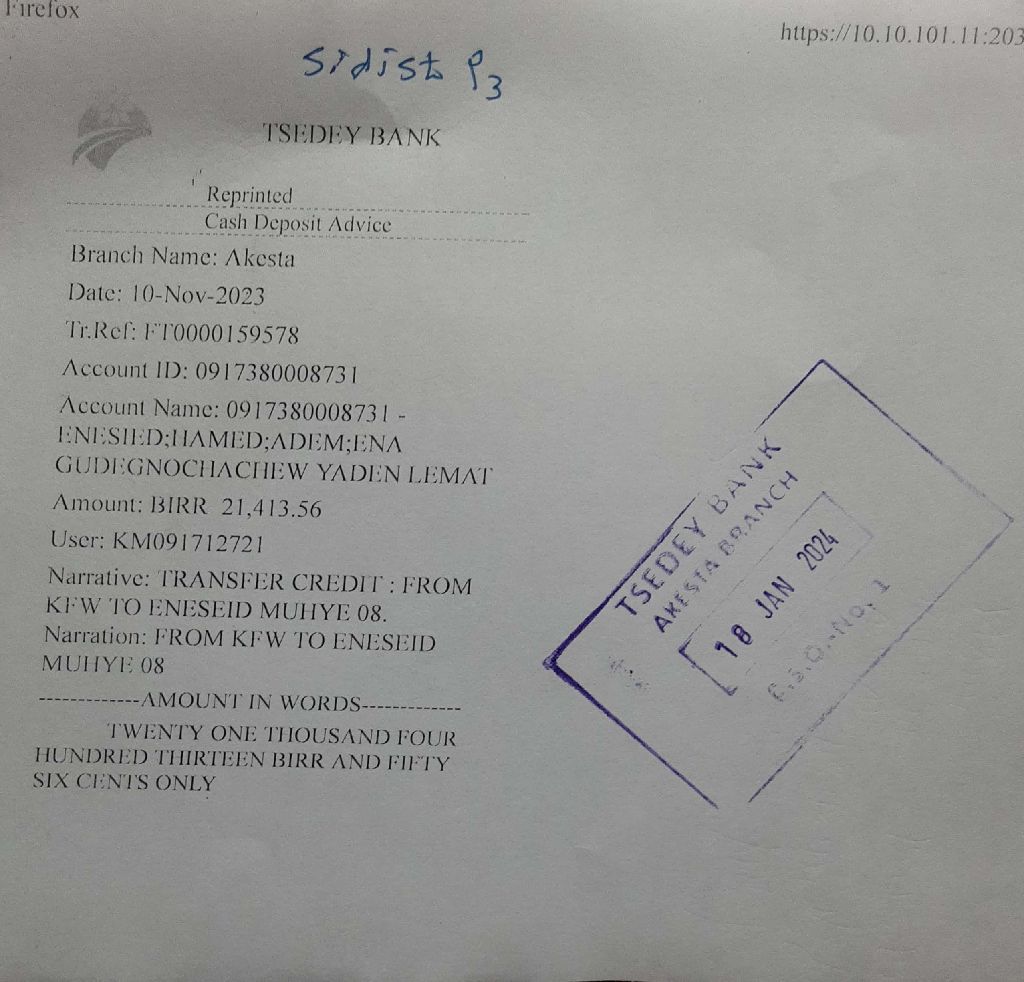 Firefox
https://10.10.101.11:203
Sidist P3
TSEDEY BANK
Reprinted
Cash Deposit Advice
Branch Name: Akesta
Date: 10-Nov-2023
Tr.Ref: FT0000159578
Account ID: 0917380008731
Account Name: 0917380008731 -
ENESIED;HAMED;ADEM;ENA
GUDEGNOCHACHEW YADEN LEMAT
Amount: BIRR 21,413.56
User: KM091712721
Narrative: TRANSFER CREDIT : FROM
KFW TO ENESEID MUHYE 08.
Narration: FROM KFW TO ENESEID
MUHYE 08
-------------AMOUNT IN WORDS-------------
TWENTY ONE THOUSAND FOUR
HUNDRED THIRTEEN BIRR AND FIFTY
SIX CENTS ONLY
TSEDEY BANK
AKESTA BRANCH
18 JAN 2024
No. 1